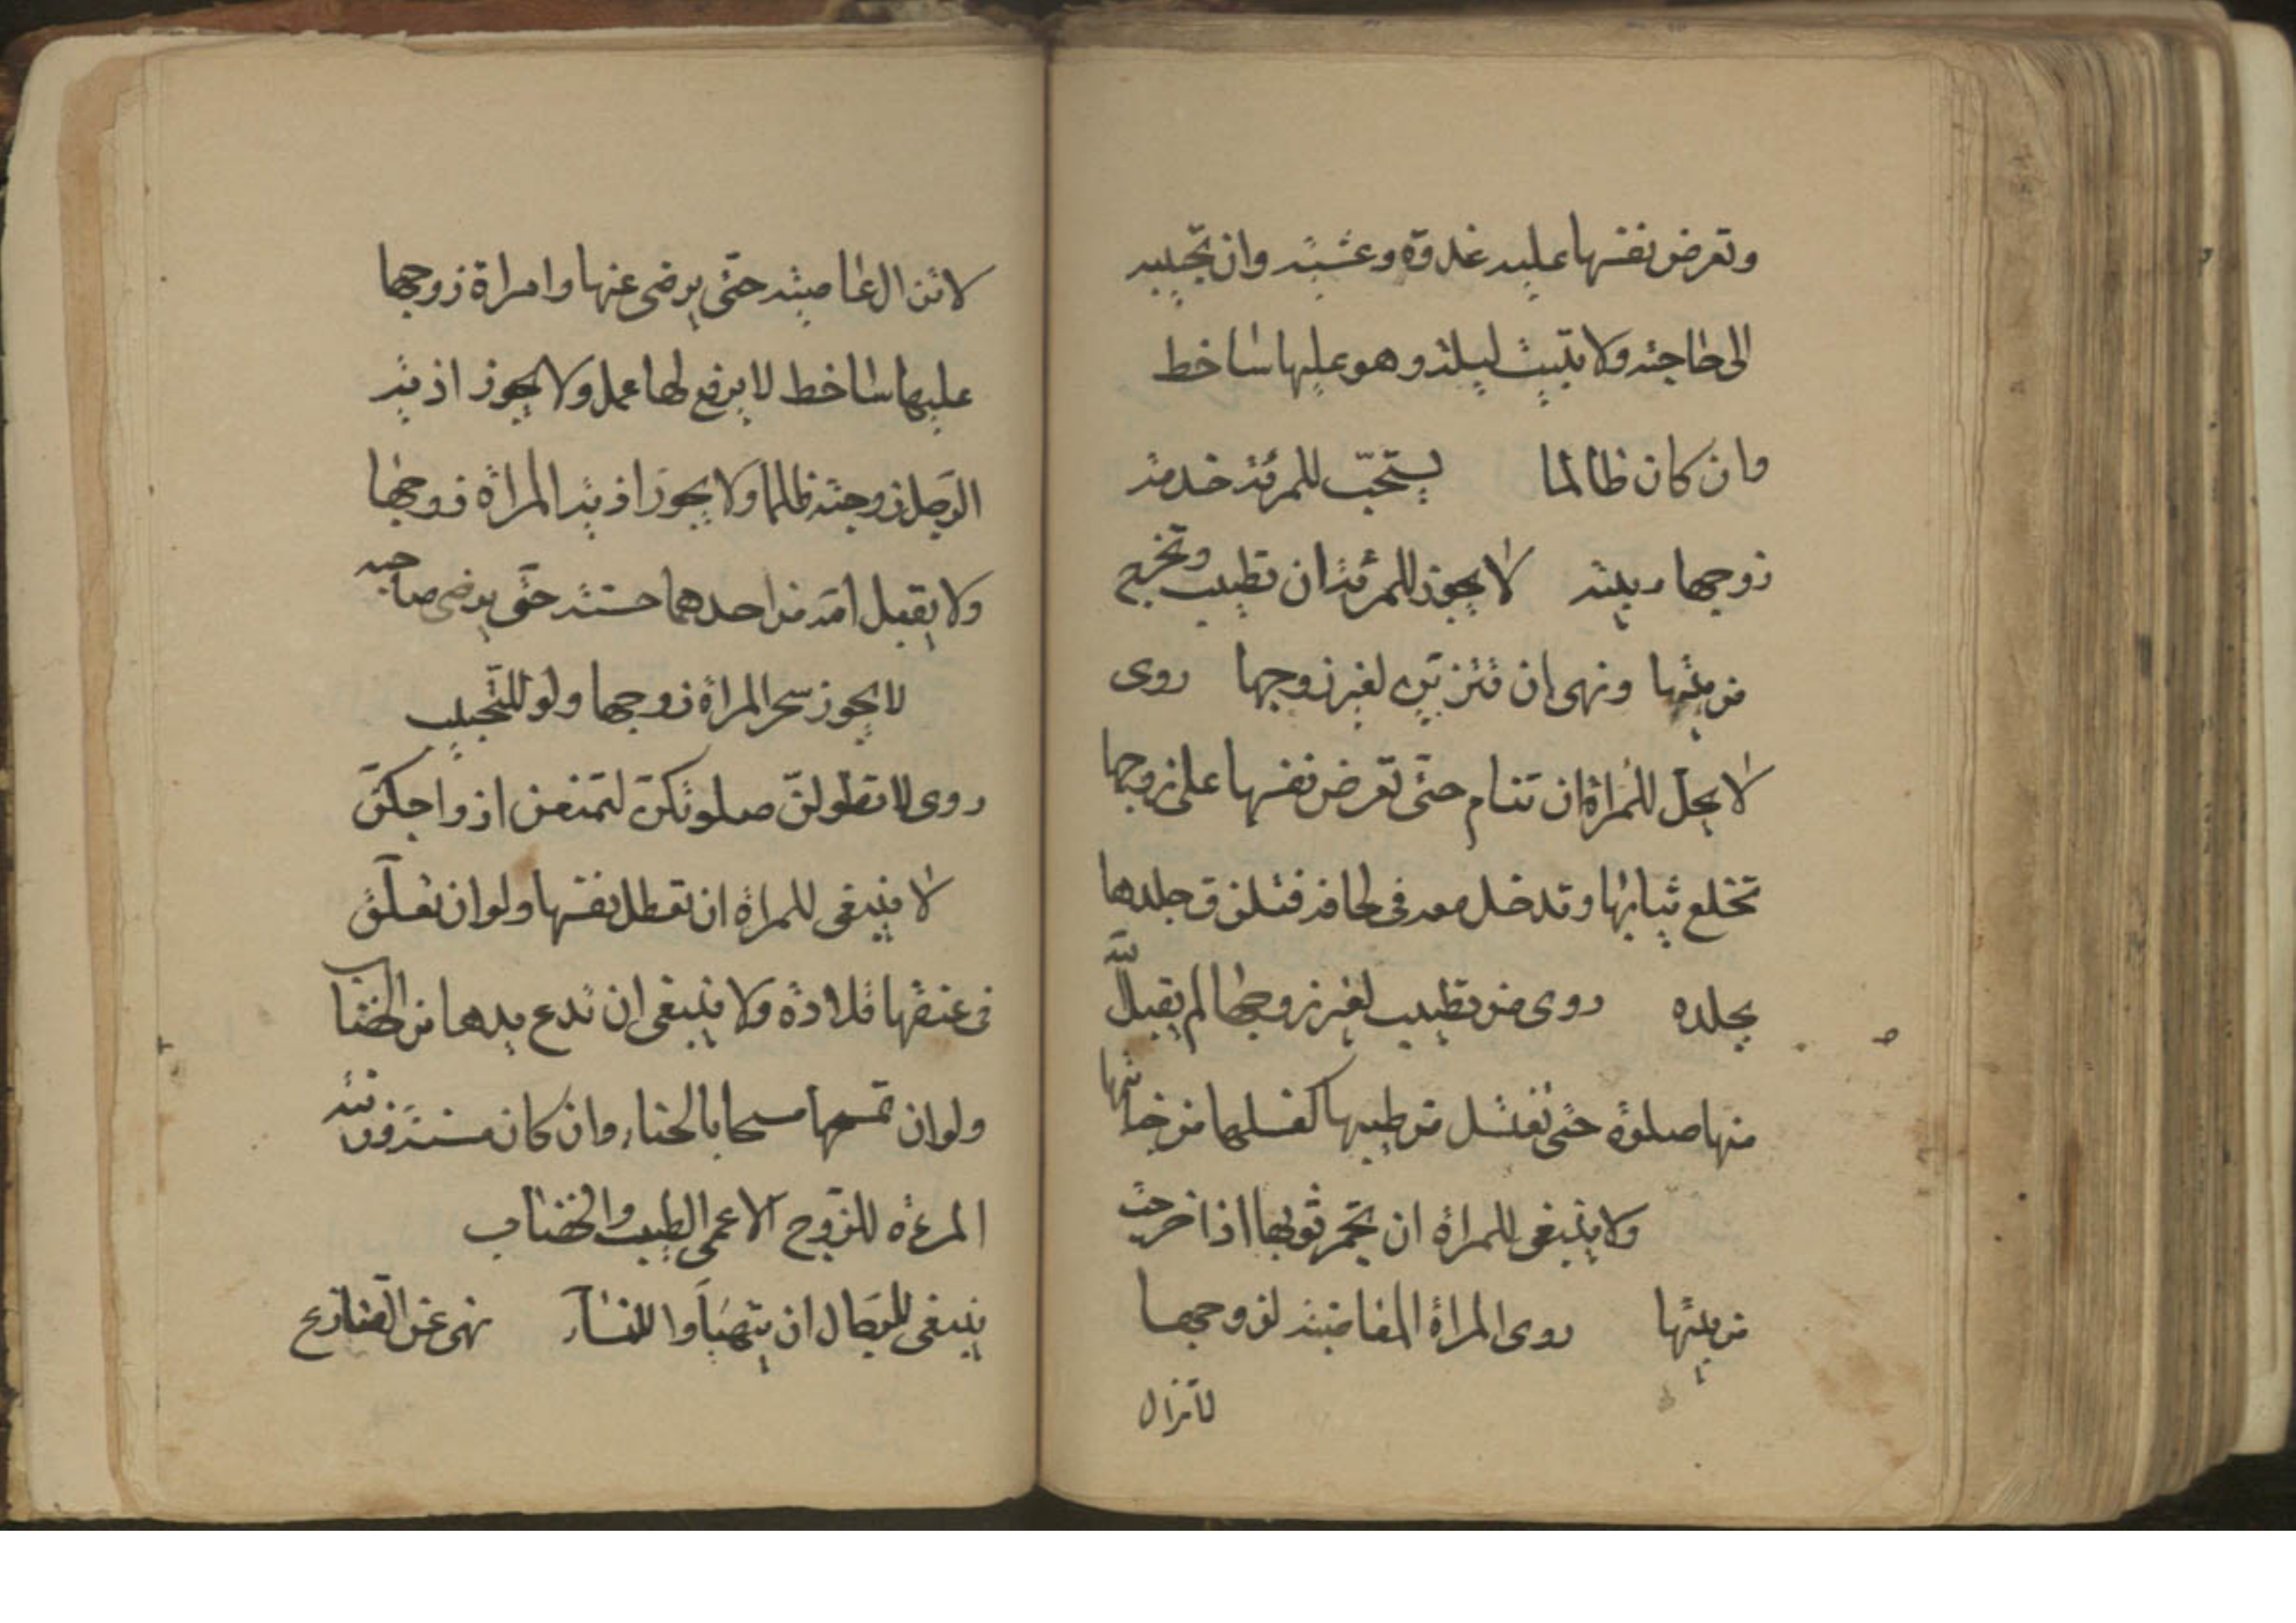 وتعرض نفسها عليه غدوة وعشية وان تجيبه
الى حاجته ولا تبيت ليلة وهو عليها ساخط
وان كان ظالما يستحب للمرئة خدمة
زوجها لا يجوز للمرئة ان تطيب وتخرج
من بيتها ونهى ان تتزين لغير زوجها روى
لا يحل للمراة ان تنام حتى تعرض نفسها على زوجها
تخلع ثيابها وتدخل معه فى لحافه فتلزق جلدها
بجلده روى من تطيب لغير زوجها لم يقبل الله
منها صلوة حتى تغتسل من طيبها كغسلها من جنابتها
ولا ينبغى للمراة ان تجمر ثوبها اذا خرجت
من بيتها روى المراة المغاضبة لزوجها
لا تزال
لا تزال عاصية حتى يرضى عنها وامراة زوجها
عليها ساخط لا يرفع لها عمل ولا يجوز اذية
الرجل زوجته ظالما ولا يجوز اذية المراة زوجها
ولا يقبل الله من احدهما حسنة حتى يرضى صاحبه
لا يجوز سحر المراة زوجها ولو للتحبيب
روى لا تطولن صلوتكن لتمنعن ازواجكن
لا ينبغى للمراة ان تعطل نفسها ولو ان تعلق
فى عنقها قلادة ولا ينبغى ان تدع يدها من الخضاب
ولو ان تمسها مسحا بالحناء وان كان مسنة وزينة
المرءة للزوج الاعمى الطيب والخضاب
ينبغى للرجال ان يتهيأوا للنساء نهى عن القنازع